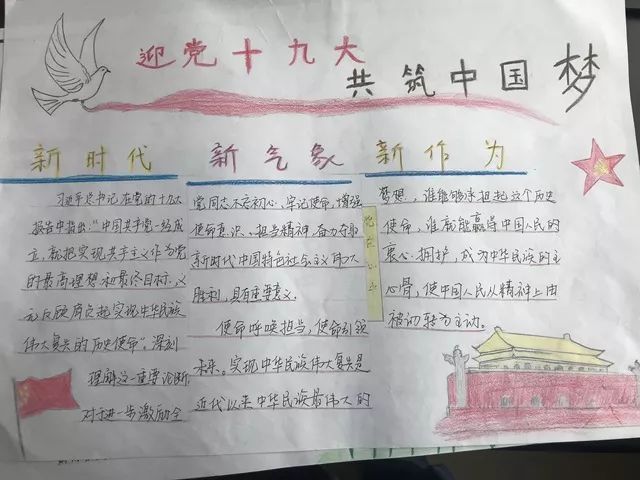 迎党十九大
共筑中国梦
新时代
习近平总书记在党的十九大
报告中指出:“中国共产党一经成
立,就把实现共产主义作为党
的最高理想和最终目标,义
无反顾肩负起实现中华民族
伟大复兴的历史使命”。深刻
理解这一重要论断
对于进一步激励全
新气象
党同志不忘初心、牢记使命,增强
使命意识、担当精神,奋力夺取
新时代中国特色社会主义伟大
胜利,具有重要意义.
使命呼唤担当,使命引领
未来。实现中华民族伟大复兴是
近代以来中华民族最伟大的
新作为
梦想,谁能够承担起这个历史
使命,谁就能赢得中国人民的
衷心拥护,成为中华民族的主
心骨,使中国人民从精神上由
被动转为主动。
党在心中